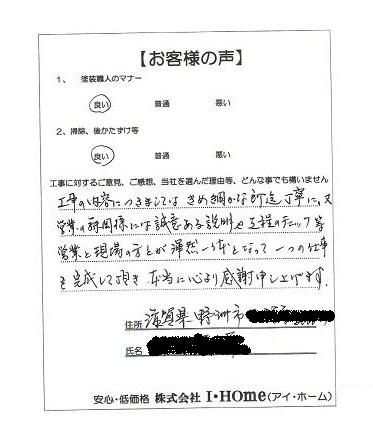 【お客様の声】
1、 塗装職人のマナー
良い 普通 悪い
2、掃除、後かたずけ等
良い 普通 悪い
工事に対するご意見、ご感想、当社を選んだ理由等、どんな事でも構いません
工事の内容につきましては きめ細かな所迄丁寧に、又
営業の 様には誠意ある説明や工程のチェック等
営業と現場の方とが渾然一体となって一つの仕事
を完成して頂き 本当に心より感謝申し上げます。
住所 滋賀県野洲市
氏名
安心・低価格 株式会社 I・HOme(アイ・ホーム)